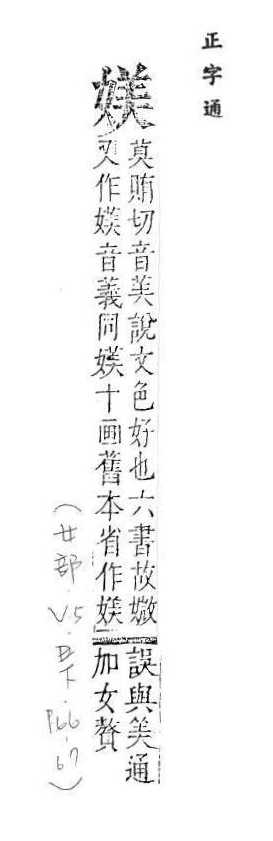 正字通
媄
莫賄切音美說文色好也六書故媺
又作媄音義同媄十画舊本省作媄
誤與美通
加女贅
(女部.V5.丑下.P66-67)